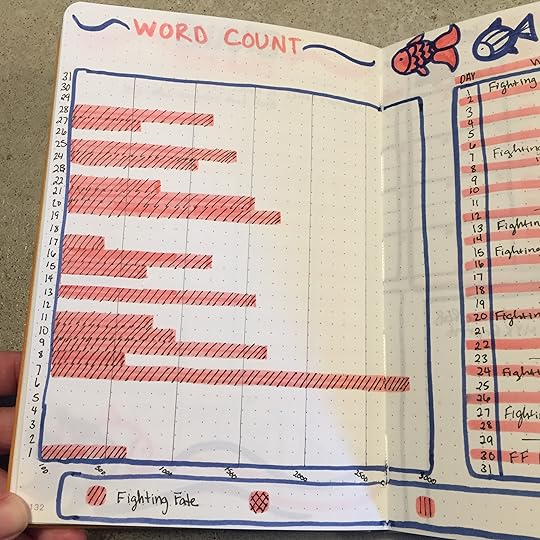 WORD COUNT
31
30
29
28
27
26
25
24
23
22
21
20
19
18
17
16
15
14
13
12
11
10
9
8
7
6
5
4
3
2
1
100
500
1000
1500
2000
2500
3000
Fighting Fate
132
DAY
1 Fighting
2
3
4
5
6
7 Fighting
8
9
10
11
12
13 Fighting
14
15 Fighting
16
17
18
19
20 Fighting
21
22
23
24 Fighting
25
26
27 Fighting
28
29
30 FF
31